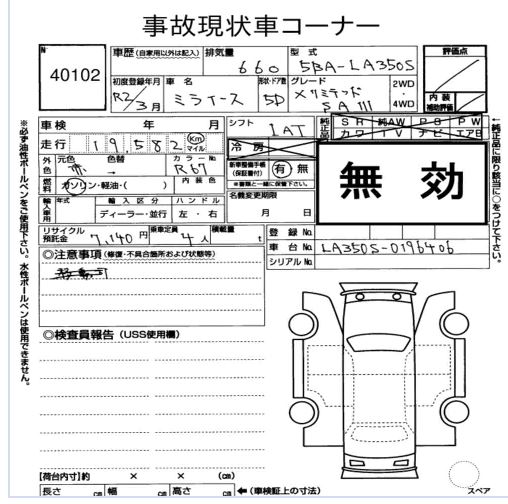 事故現状車コーナー
No 40102
車歴 (自家用以外は記入)
排気量 660
型式 5BA-LA350S
評価点
初度登録年月 R2/3月
車名 ミライース
形状・ドア数 5D
グレード XリミテッドSAIII
2WD・4WD
内装補助評価
車検 年 月
シフト IAT
純正品
SR 純AW PS PW
カワ TV ナビ エアB
走行 19,582 Km マイル
冷房
外色 元色 赤 色替 →
カラーNo R67
新車整備手帳(保証書付) 有・無
※書類と一緒に保管下さい。
燃料 ガソリン・軽油・( )
内装色
無効
名義変更期限 月 日
輸入車用 年式 輸入区分 ハンドル
ディーラー・並行 左・右
リサイクル預託金 7,140円
乗車定員 4人
積載量 t
登録No.
車台No. LA350S-0196406
シリアルNo.
◎注意事項 (修復・不具合箇所および状態等)
移動可
◎検査員報告 (USS使用欄)
【荷台内寸】約 × × (cm)
長さ cm 幅 cm 高さ cm ←(車検証上の寸法)
スペア
※必ず油性ボールペンをご使用下さい。水性ボールペンは使用できません。
←純正品に限り該当に○をつけて下さい。